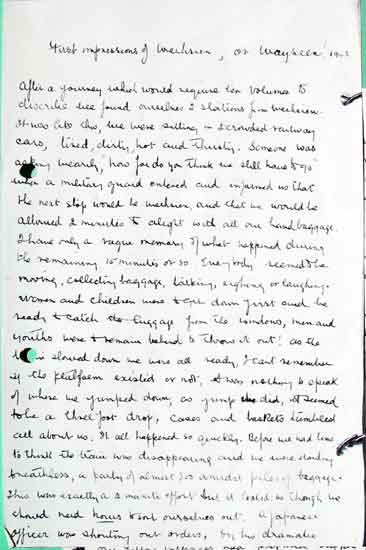 First impressions of Weihsien, or Wayhsien, 1943
After a journey which would require ten volumes to
describe we found ourselves 2 stations from Weihsien.
It was like this, we were sitting in a crowded railway
cars, tired, dirty, hot and thirsty. Someone was
asking wearily, how far do you think we still have to go
when a military guard entered and informed us that
the next stop would be Weihsien, and that we would be
allowed 2 minutes to alight with all our hand baggage.
I have only a vague memory of what happened during
the remaining 15 minutes or so. Everybody seemed to be
moving, collecting baggage, talking, sighing or laughing.
Women and children were to get down first and be
ready to catch the luggage from the windows, men and
youths were to remain behind to throw it out! As the
slowed down we were all ready, I can't remember
if the platform existed or not, it was nothing to speak
of where we jumped down, as jump we did, it seemed
to be a three foot drop, cases and baskets tumbled
all about us. It all happened so quickly. Before we had time
to think the train was disappearing and we were standing
breathless, a party of almost 300 amidst piles of baggage.
This was exactly a 2 minute effort but it looked as though we
should need hours to sort ourselves out. A Japanese
officer was shouting out orders, by his dramatic